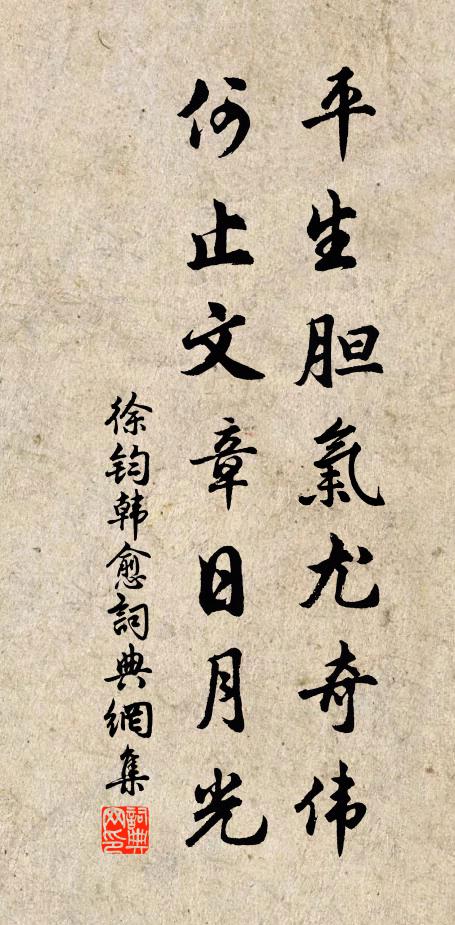 平生胆氣尤奇伟
何止文章日月光
徐钧韩愈詞典網集
詞典網印